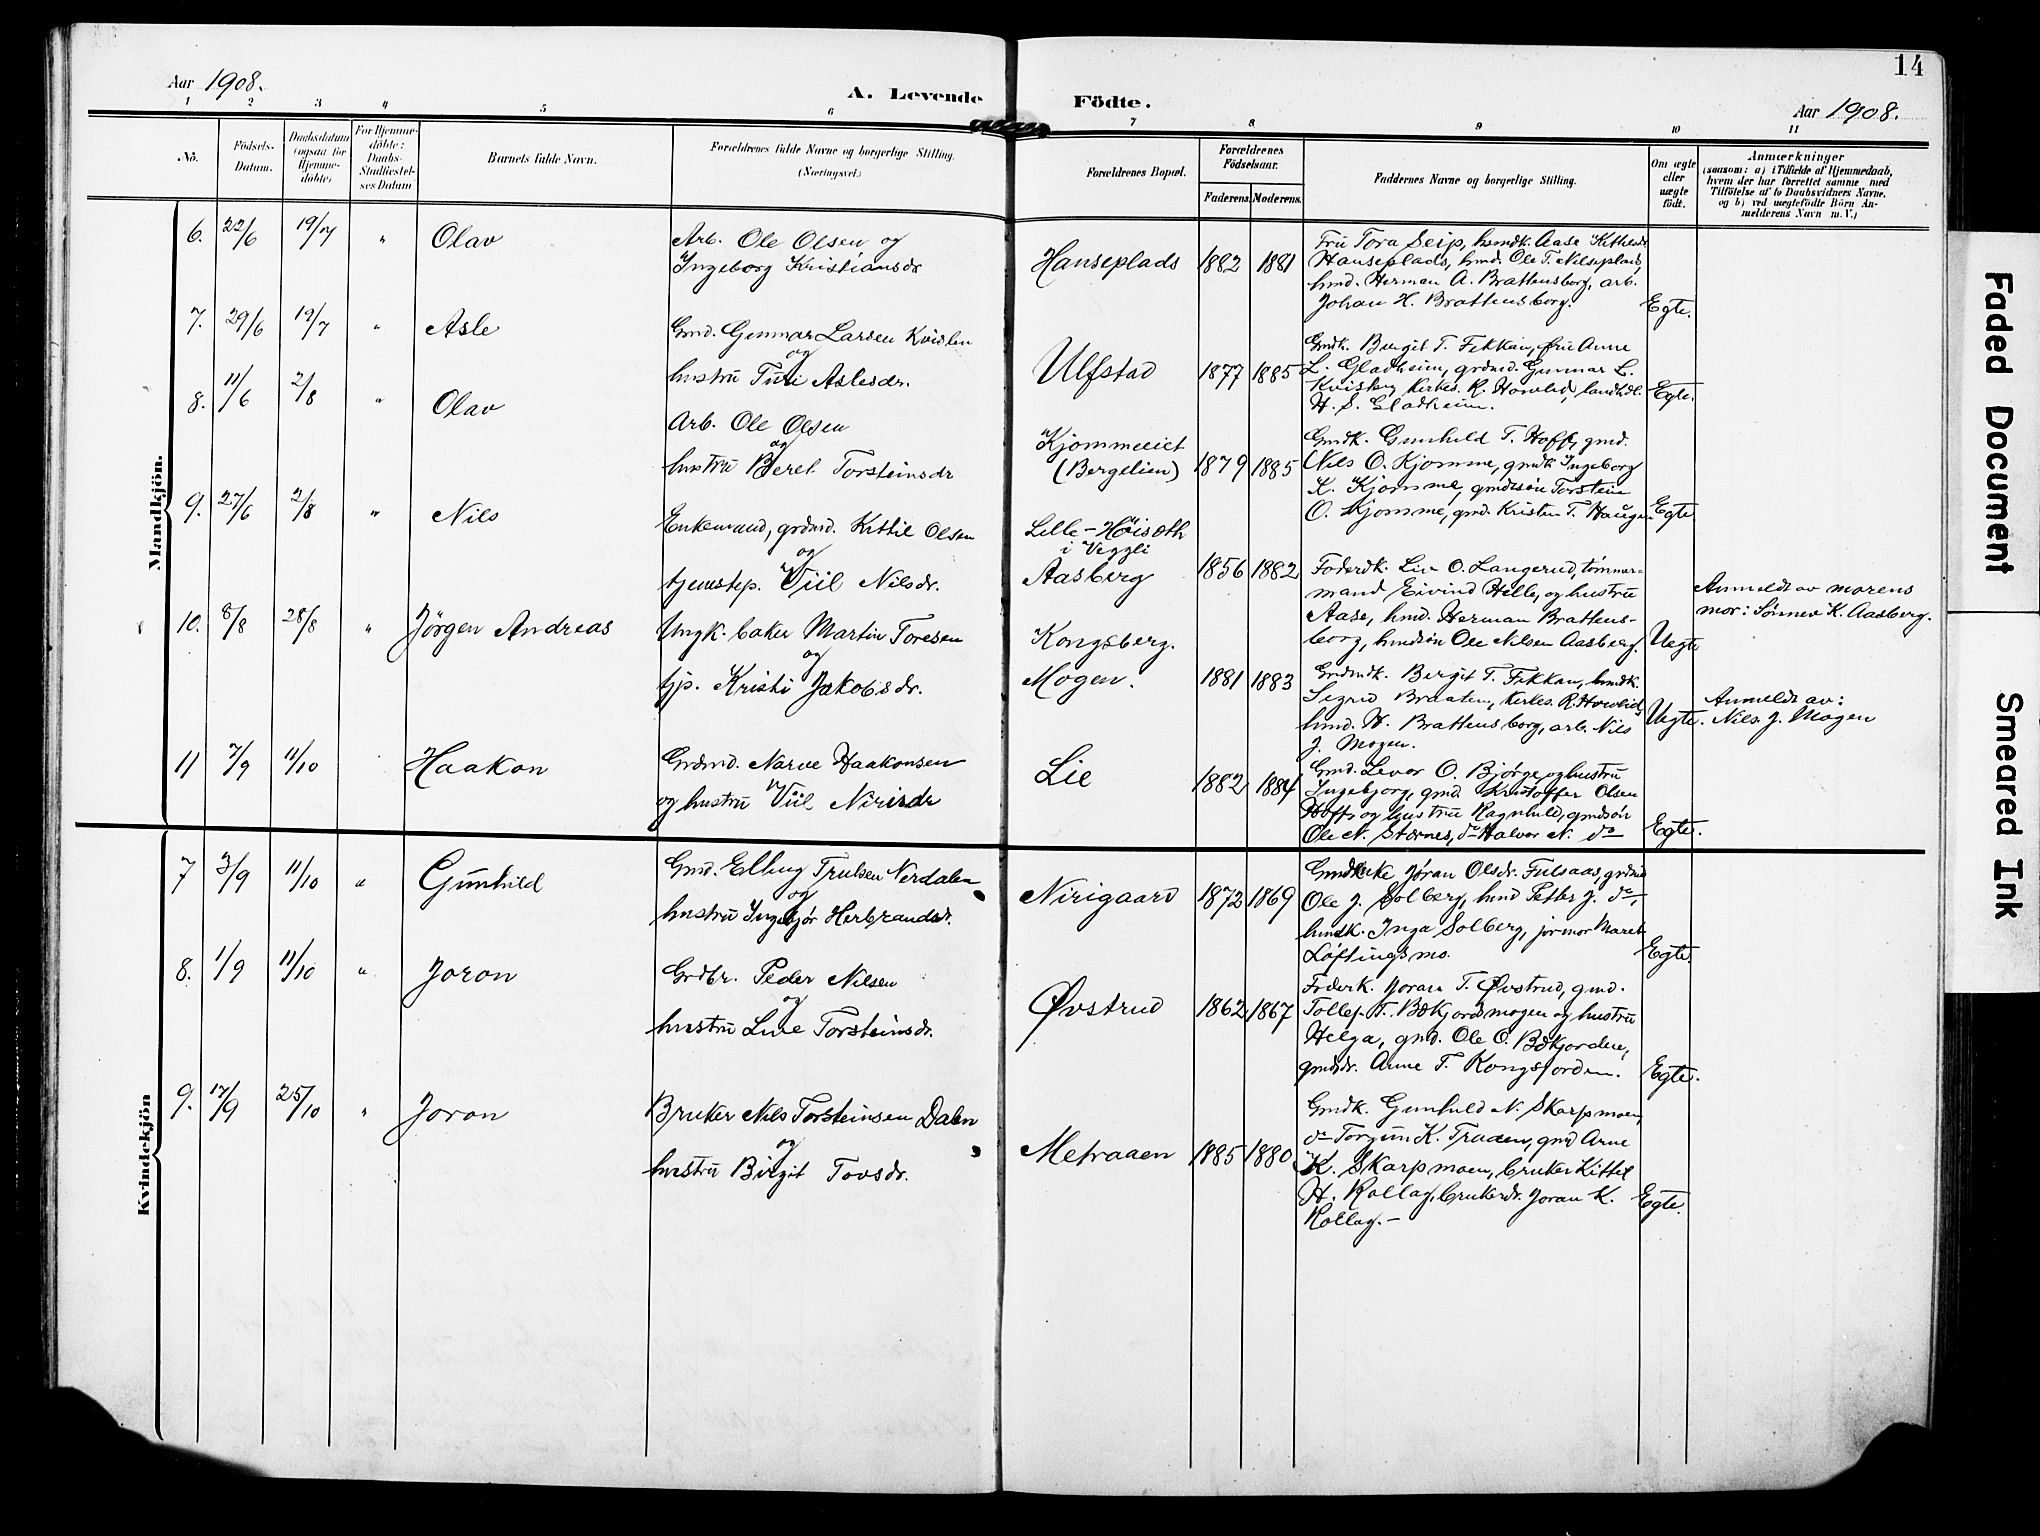 14
Aar 1908.
A. Levende Födte.
Aar 1908.
1 2 3 4 5 6 7 8 9 10 11
No.
Födsels-
Datum.
Daabsdatum
(ogsaa for
Hjemme-
döbte)
For Hjemme-
döbte:
Daabs-
Stadfæstel-
ses Datum
Barnets fulde Navn.
Forældrenes fulde Navne og borgerlige Stilling.
(Næringsvei.)
Forældrenes Bopæl.
Forældrenes
Födselsaar.
Faderens. Moderens.
Faddernes Navne og borgerlige Stilling.
Om ægte
eller
uægte
födt.
Anmærkninger
(saasom: a) i Tilfælde af Hjemmedaab,
hvem der har forrettet samme med
Tilföielse af to Daabsvidners Navne,
og b) ved uægtefödte Börn An-
melderens Navn m. V.)
Mandkjön.
6. 22/6 19/7 " Olav
Arb. Ole Olsen og
Ingeborg Kristiansdr
Hanseplads 1882 1881
Fru Tora Seip, hsmdk. Aase Kittelsdr
Hanseplads, hmd. Ole T. Nilseplads,
hmd. Herman A. Brattensborg, arb.
Johan H. Brattensborg.
Egte.
7. 29/6 19/7 " Asle
Gmd. Gunnar Larsen Kvislen
og
hustru Turi Aslesdr.
Ulfstad 1877 1885
Gmdk. Birgit T. Fekkan, fru Anne
L. Gladheim, grdmd. Gunnar L.
Kvisberg, kirkes. R. Hovlid, landhdl.
H. S. Gladheim.
Egte.
8. 11/6 2/8 " Olav
Arb. Ole Olsen
og
hustru Beret Torsteinsdr
Kjommeeiet
(Bergelien) 1879 1885
Gmdk. Gunhild T. Hoff, gmd.
Nils O. Kjomme, gmdk Ingeborg
K. Kjomme, gmdssön Torstein
O. Kjomme, gmd. Kristen T. Haugen
Egte
9. 27/6 2/8 " Nils
Enkemand, grdmd. Kittil Olsen
og
tjenestep. Viil Nilsdr.
Lille-Höisæth
i Veggli
Aasberg 1856 1882
Foderdk. Liv O. Langerud, tömmer-
mand Eivind Helle, og hustru
Aase, hmd. Herman Brattens-
borg, hmdsön Ole Nilsen Aasberg.
Uegte
Anmeldt av morens
mor: Sønnev K. Aasberg.
10. 8/8 28/8 " Jørgen Andreas
Ungk. baker Martin Toresen
og
tjp. Kristi Jakobsdr.
Kongsberg.
Mogen. 1881 1883
Grdmdk. Birgit T. Fekkan, hmdk.
Sigrid Braaten, kirkes. R. Hovlid,
hmd. H. Brattensborg, arb. Nils
J. Mogen.
Uegte.
Anmeldt av:
Nils J. Mogen
11 7/9 11/10 Haakon
Grdmd. Narve Haakonsen
og hustru Viil Nirisdr
Lie 1882 1884
Gmd. Levor O. Bjørge og hustru
Ingebjorg, gmd. Kristoffer Olsen
Hoff, og hustru Ragnhild, gmdsön
Ole N. Stærnes, do Halvor N. do
Egte.
Kvindekjön
7 3/9 11/10 " Gunhild
Gmd. Elling Trulsen Nerdalen
og
hustru Ingebjør Herbrandsdr.
Nirigaard 1872 1869
Gmdenke Jøran Olsdr. Fulsaas, grdmd
Ole J. Solberg, hmd Petter J. do,
hmdk. Inga Solberg, jormor Maret
Løftingsmo.
Egte.
8. 1/9 11/10 " Joron
Grdbr. Peder Nilsen
og
hustru Live Torsteinsdr.
Øvstrud 1862 1867
Frderk. Joran T. Øvstrud, gmd.
Tollef T. Bækjordsmogen og hustru
Helga, gmd. Ole O. Bækjorden,
gmdsdr. Anne T. Kongsjorden.
Egte.
9. 17/9 25/10 " Joron
Bruker Nils Torsteinsen Dalen
og
hustru Birgit Tovsdr.
Metraaen 1885 1880
Gmdk. Gunhild N. Skarpmoen,
do Torgun K. Traaen, gmd Arne
K. Skarpmoen, bruker Kittil
H. Rollag, brukerdr. Joran K.
Rollag.—
Egte.
Faded Document
Smeared Ink